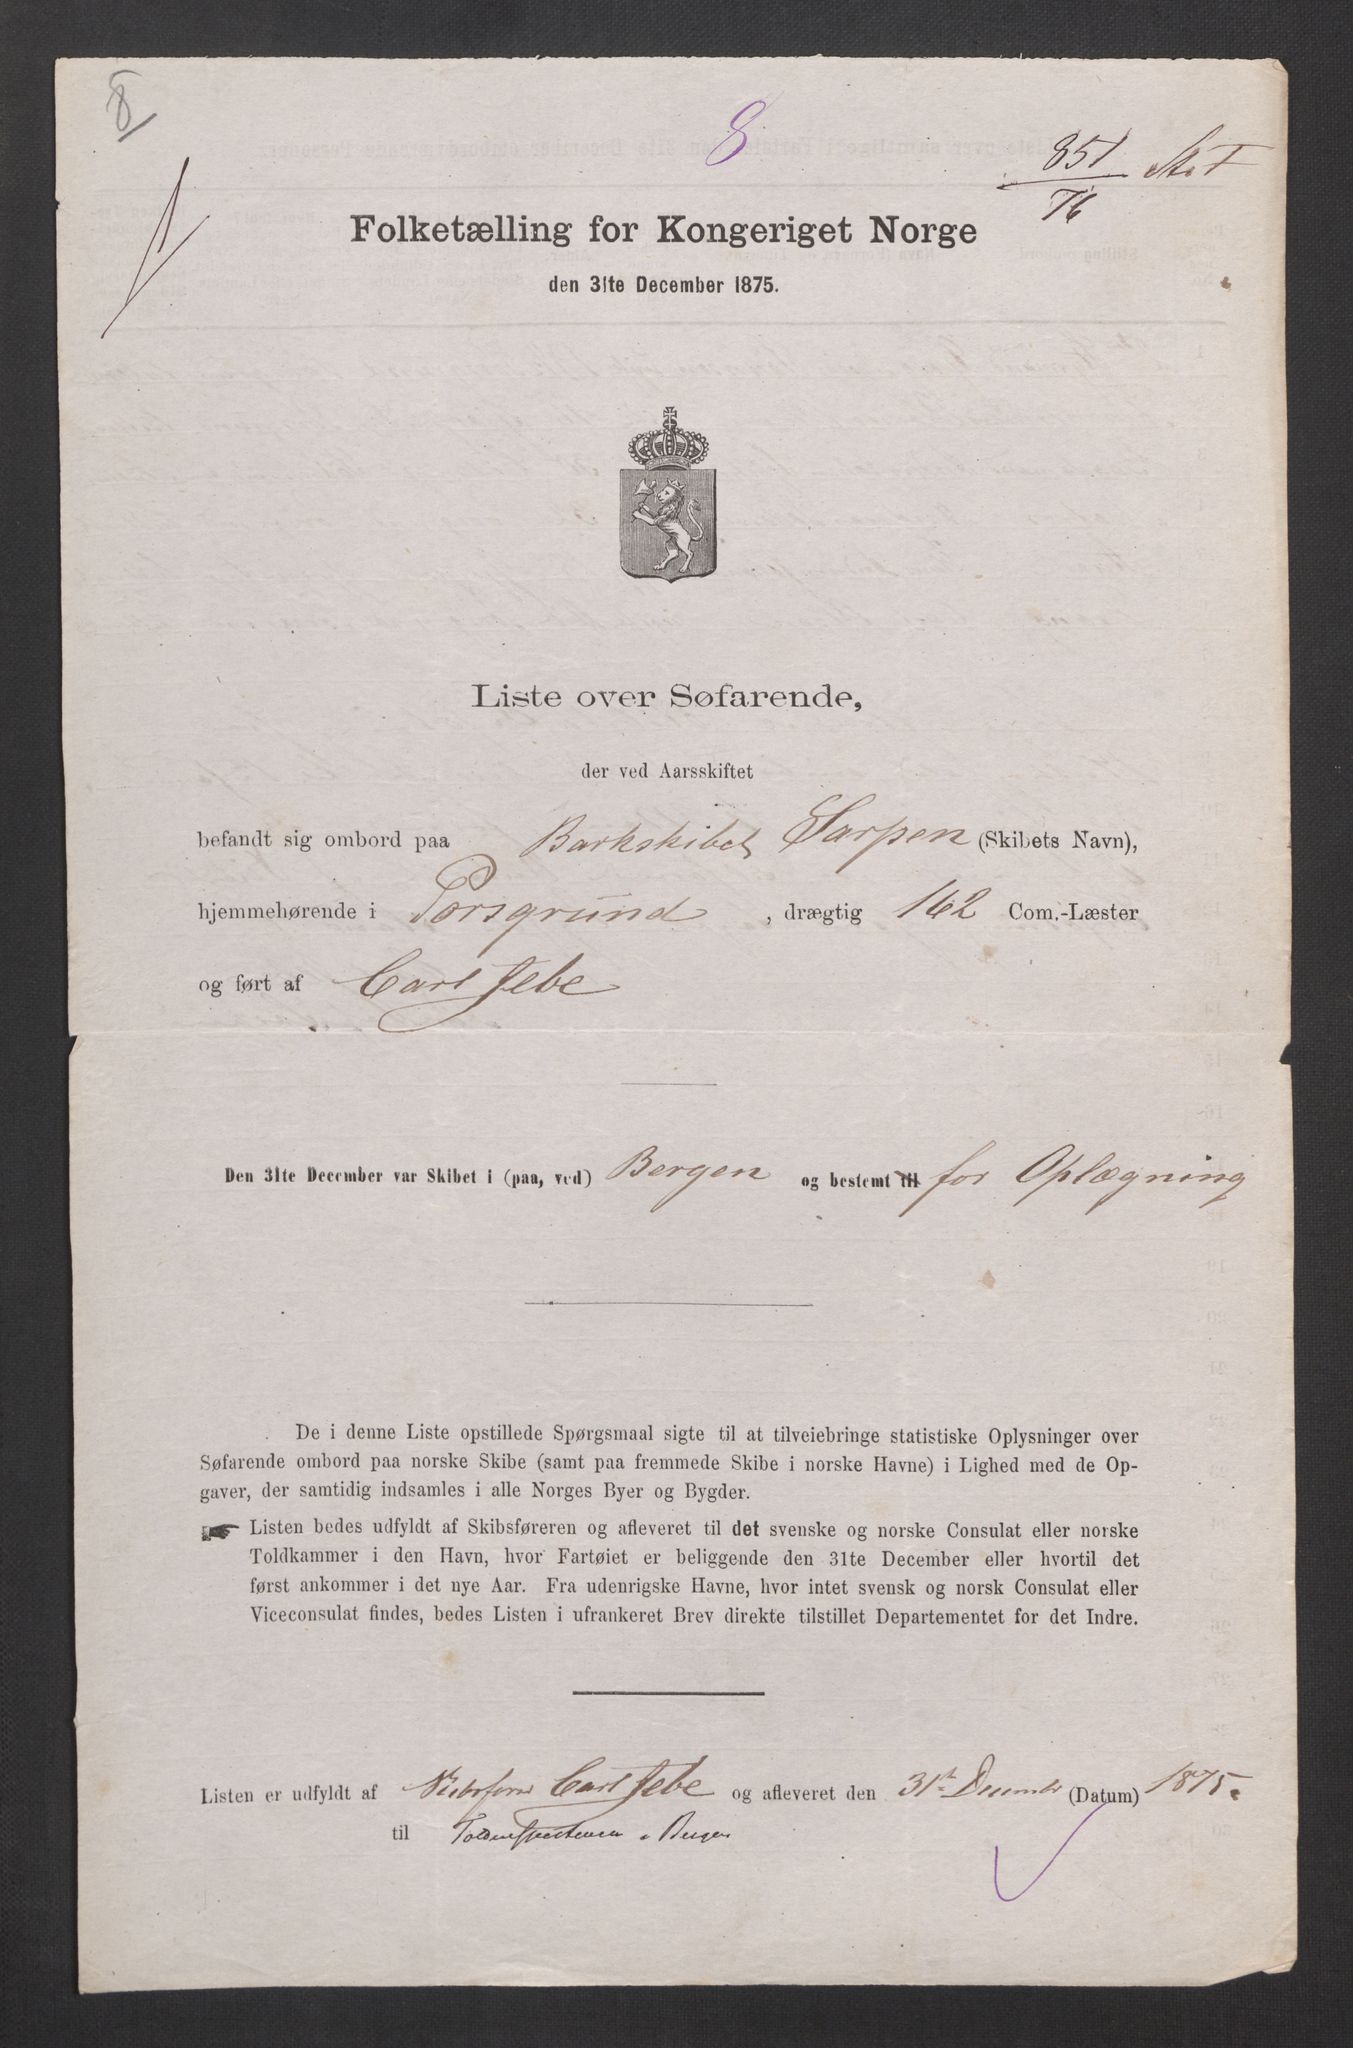 8
8
851
76
Folketælling for Kongeriget Norge
den 31te December 1875.
Liste over Søfarende,
der ved Aarsskiftet
befandt sig ombord paa Barkskibet Sarpen (Skibets Navn),
hjemmehørende i Porsgrund, drægtig 162 Com.-Læster
og ført af Carl Jebe
Den 31te December var Skibet i (paa, ved) Bergen og bestemt til for Oplægning
De i denne Liste opstillede Spørgsmaal sigte til at tilveiebringe statistiske Oplysninger over
Søfarende ombord paa norske Skibe (samt paa fremmede Skibe i norske Havne) i Lighed med de Op-
gaver, der samtidig indsamles i alle Norges Byer og Bygder.
Listen bedes udfyldt af Skibsføreren og afleveret til det svenske og norske Consulat eller norske
Toldkammer i den Havn, hvor Fartøiet er beliggende den 31te December eller hvortil det
først ankommer i det nye Aar. Fra udenrigske Havne, hvor intet svensk og norsk Consulat eller
Viceconsulat findes, bedes Listen i ufrankeret Brev direkte tilstillet Departementet for det Indre.
Listen er udfyldt af Carl Jebe og afleveret den 31te December (Datum) 1875.
til Toldinspecteuren i Bergen